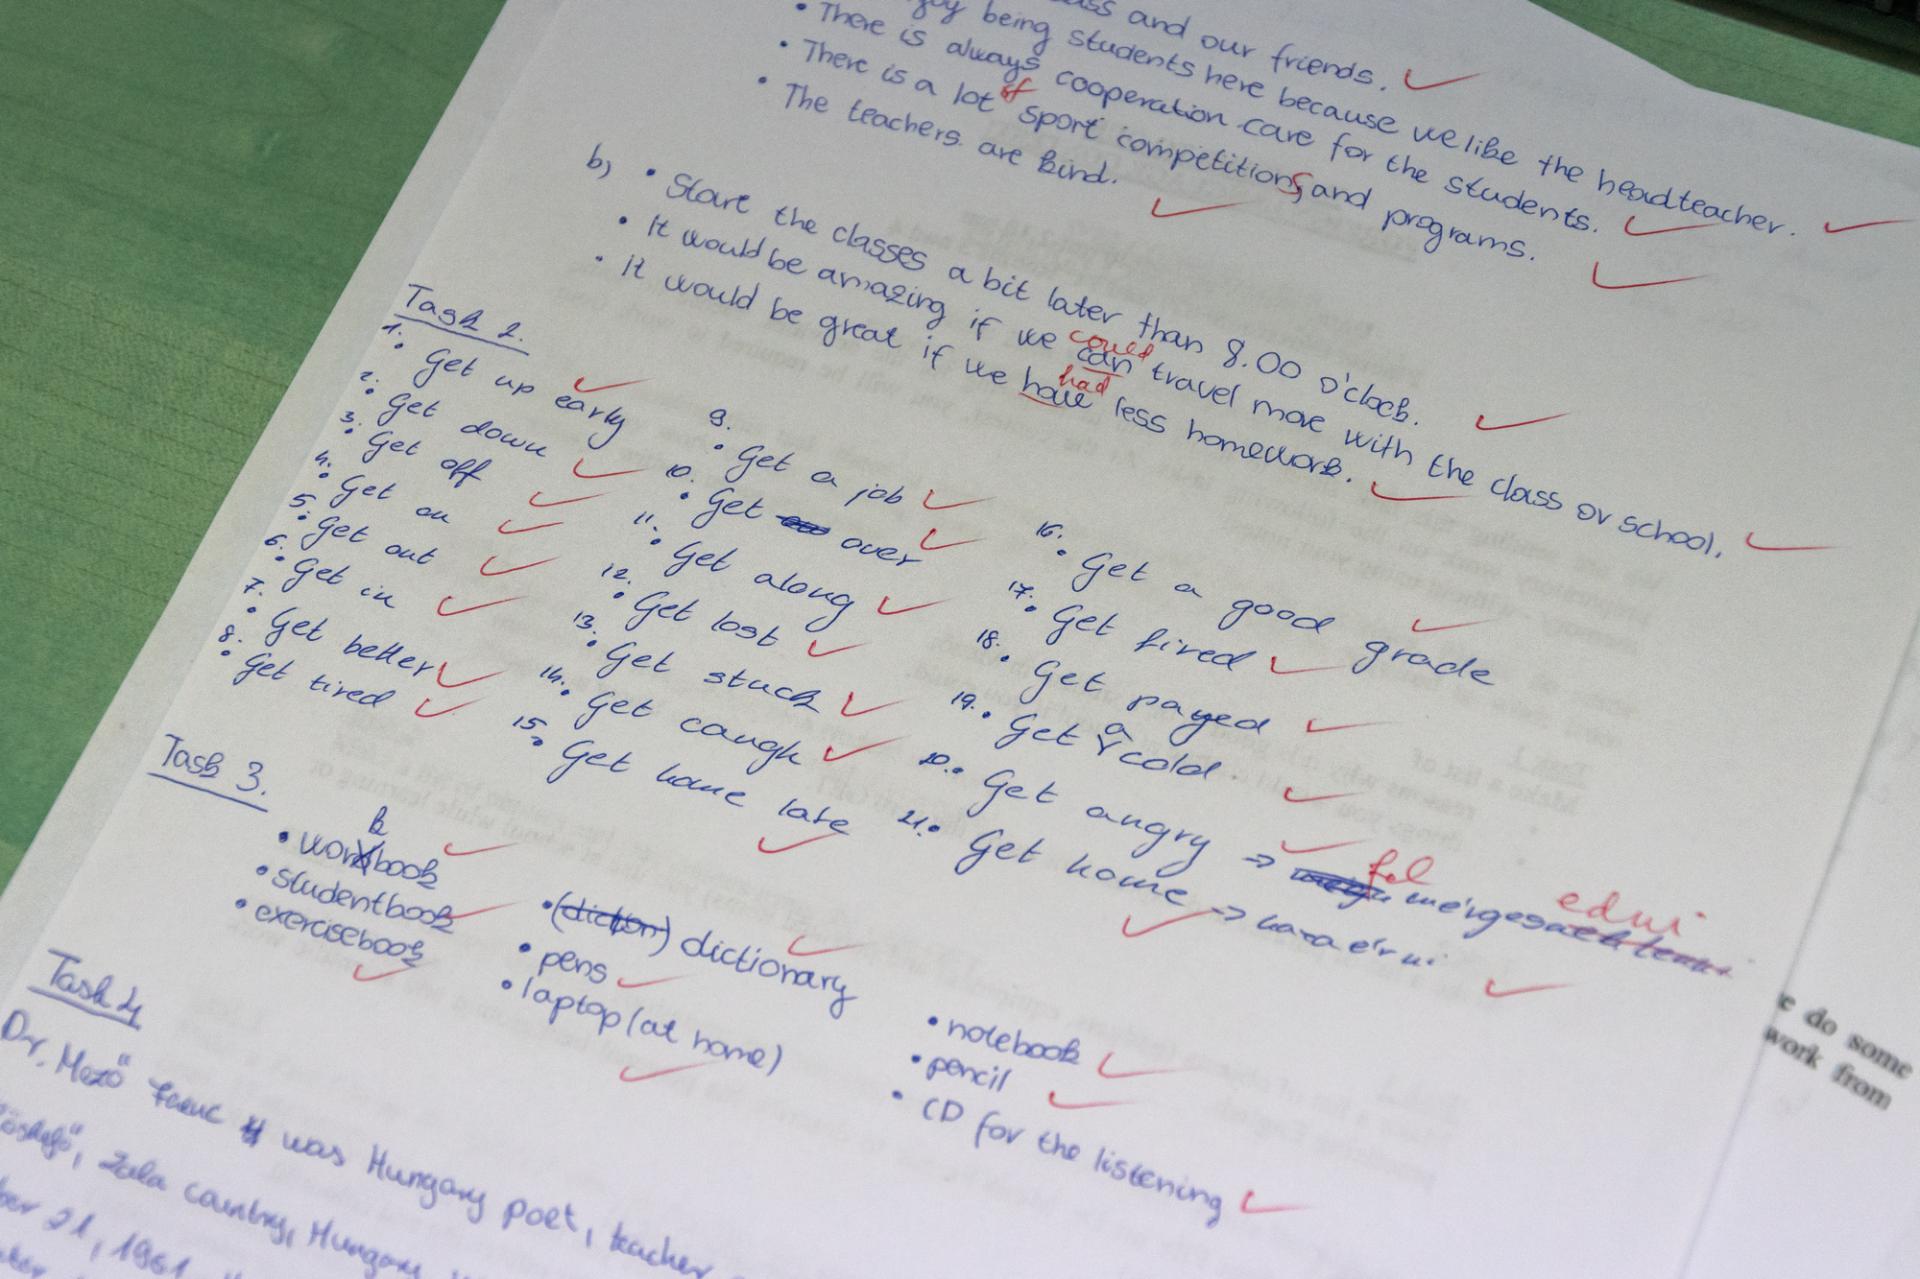 ass and our friends.
being students here because we like the headteacher.
• There is always cooperation care for the students.
• There is a lot of sport competitions, and programs.
• The teachers are kind.
b) • Start the classes a bit later than 8.00 o'clock.
• It would be amazing if we can could travel more with the class or school.
• It would be great if we have had less homework.
Task 2.
1. • Get up early
2. • Get down
3. • Get off
4. • Get on
5. • Get out
6. • Get in
7. • Get better
8. • Get tired
9. • Get a job
10. • Get over
11. • Get along
12. • Get lost
13. • Get stuck
14. • Get caugh
15. • Get home late
16. • Get a good grade
17. • Get fired
18. • Get payed
19. • Get a cold
20. • Get angry → fel edui
21. • Get home → haza érni
Task 3.
• workbook
• studentbook
• exercisebook
• (diction) dictionary
• pens
• laptop (at home)
• notebook
• pencil
• CD for the listening
Task 4
Dr. Mező Ferenc was Hungary poet, teacher
Zala country, Hungary
ber 21, 1961
e do some
work from